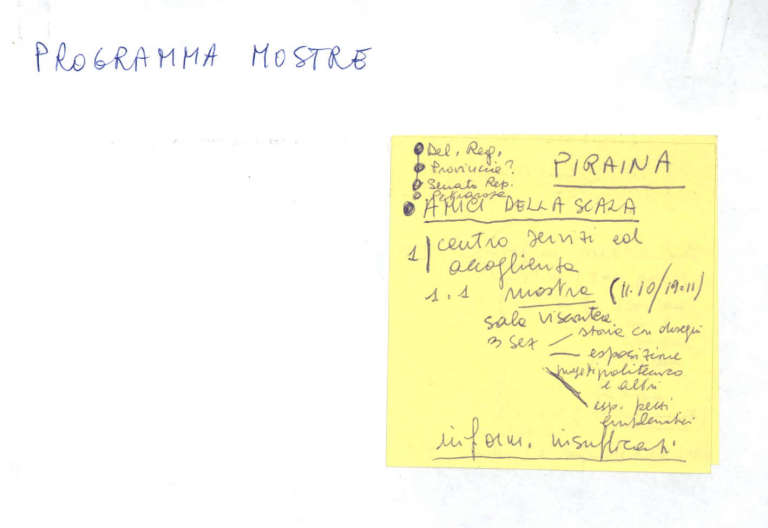 PROGRAMMA MOSTRE
Del. Reg.
Provincia?
PIRAINA
Senato Rep.
AMICI DELLA SCALA
1 centro servizi ed
accoglienza
1.1 mostra (11.10/19.11)
sala viscontea
3 sez
storia con disegni
esposizione
progetti politecnico
e altri
esp. pezzi
emblematici
inform. insufficienti